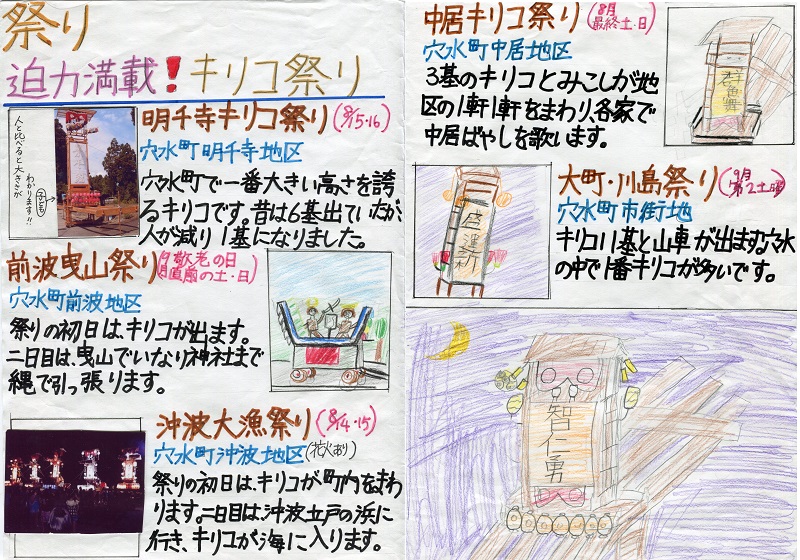 祭り
迫力満載！キリコ祭り
明千寺キリコ祭り(8/15・16)
穴水町明千寺地区
人と比べると大きさが
わかります!!
子ども
穴水町で一番大きい高さを誇
るキリコです。昔は6基出ていたが、
人が減り1基になりました。
前波曳山祭り(9月敬老の日
直前の土・日)
穴水町前波地区
祭りの初日は、キリコが出ます。
二日目は、曳山でいなり神社まで
縄で引っ張ります。
沖波大漁祭り(8/14・15)
穴水町沖波地区(花火あり)
祭りの初日は、キリコが町内をまわ
ります。二日目は、沖波立戸の浜に
行き、キリコが海に入ります。
中居キリコ祭り(8月
最終土・日)
穴水町中居地区
3基のキリコとみこしが地
区の1軒1軒をまわり、各家で
中居ばやしを歌います。
大町・川島祭り(9月
第2土日)
穴水町市街地
キリコ11基と山車が出ます。穴水
の中で1番キリコが多いです。
智仁勇